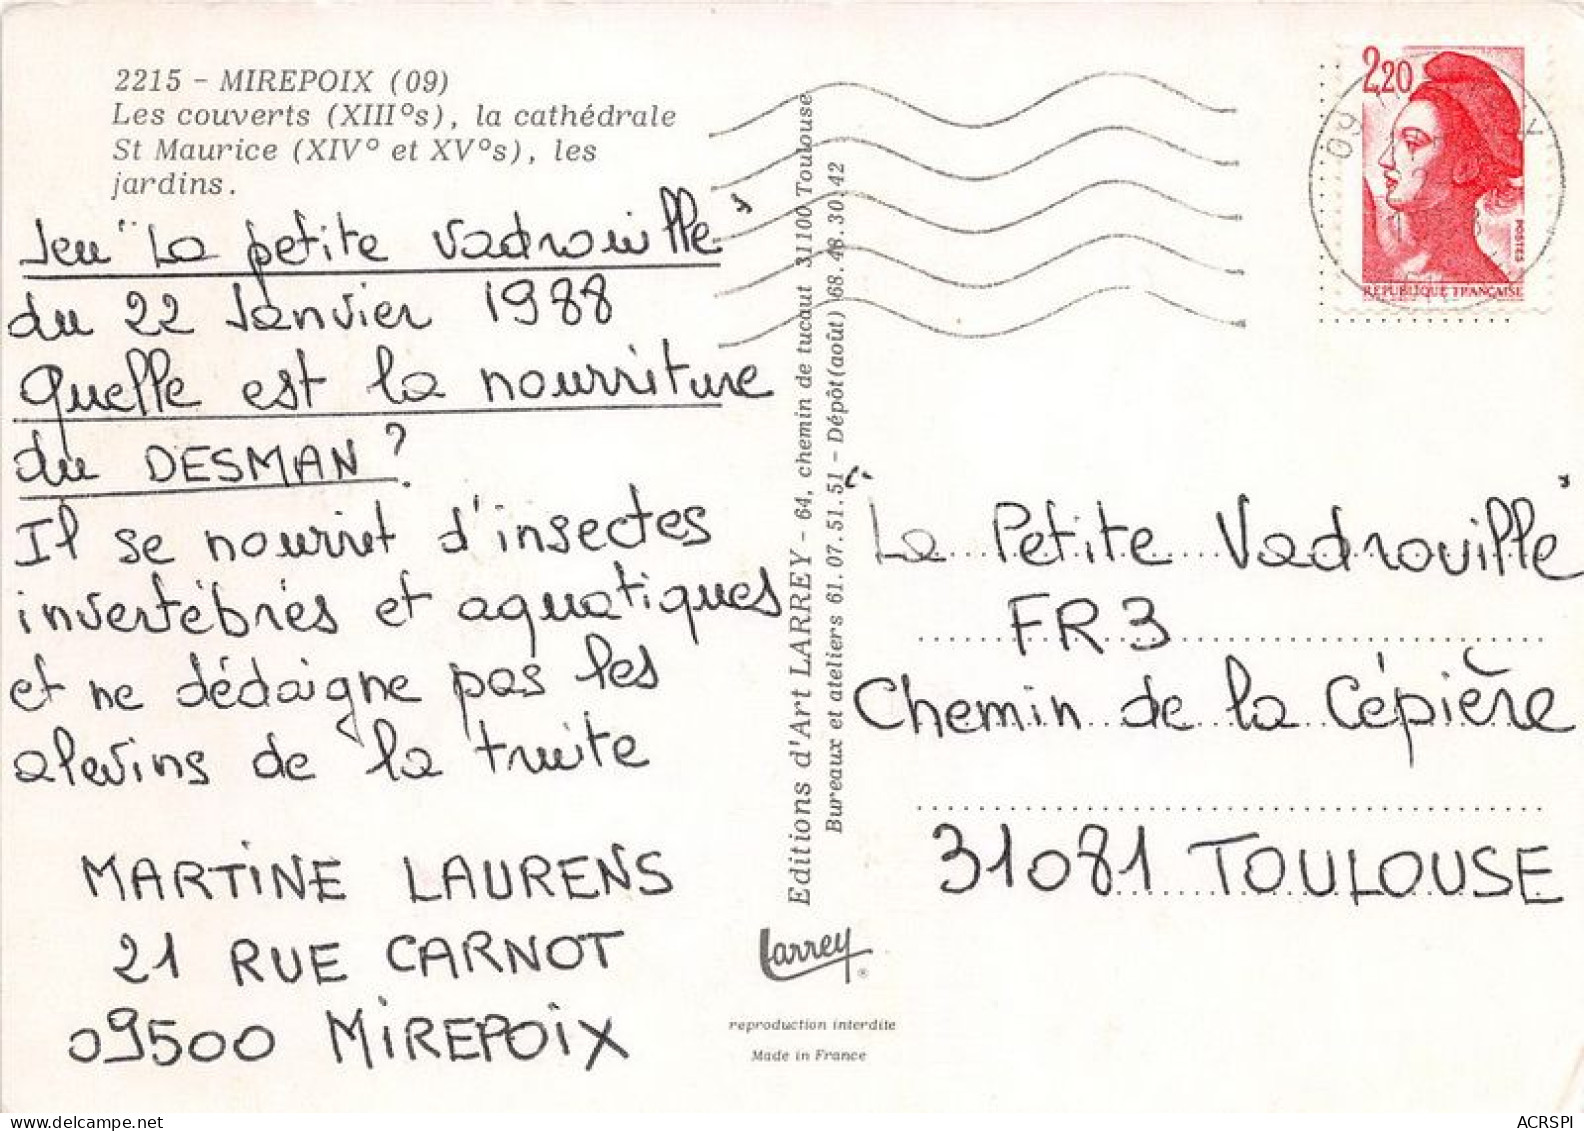 2215 - MIREPOIX (09)
Les couverts (XIII°s), la cathédrale
St Maurice (XIV° et XV°s), les
jardins.
Jeu "La petite Vadrouille"
du 22 Janvier 1988
Quelle est la nourriture
du DESMAN?
Il se nourrit d'insectes
invertébrés et aquatiques
et ne dédaigne pas les
alevins de la truite
MARTINE LAURENS
21 RUE CARNOT
09500 MIREPOIX
Editions d'Art LARREY - 64, chemin de tucaut 31100 Toulouse
Bureaux et ateliers 61.07.51.51 - Dépôt (août) 68.48.30.42
Larrey ®
reproduction interdite
Made in France
2,20
POSTES
REPUBLIQUE FRANÇAISE
09
"La Petite Vadrouille"
FR3
Chemin de la Cépière
31081 TOULOUSE
ACRSPI